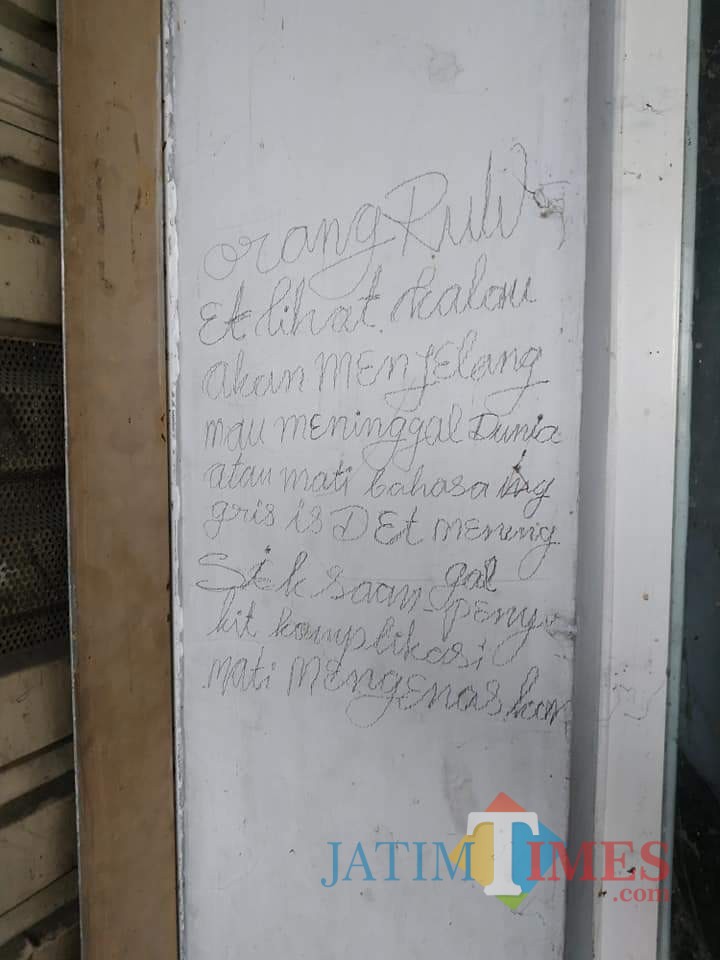 orang Rulit
Et lihat. kalau
akan MENJELang
mau MENinggal Dunia
atau mati bahasa ing
gris is DEt MENing
Siksaan gal
kit komplikasi peny
mati MENgENaskan
JATIMTIMES
.com